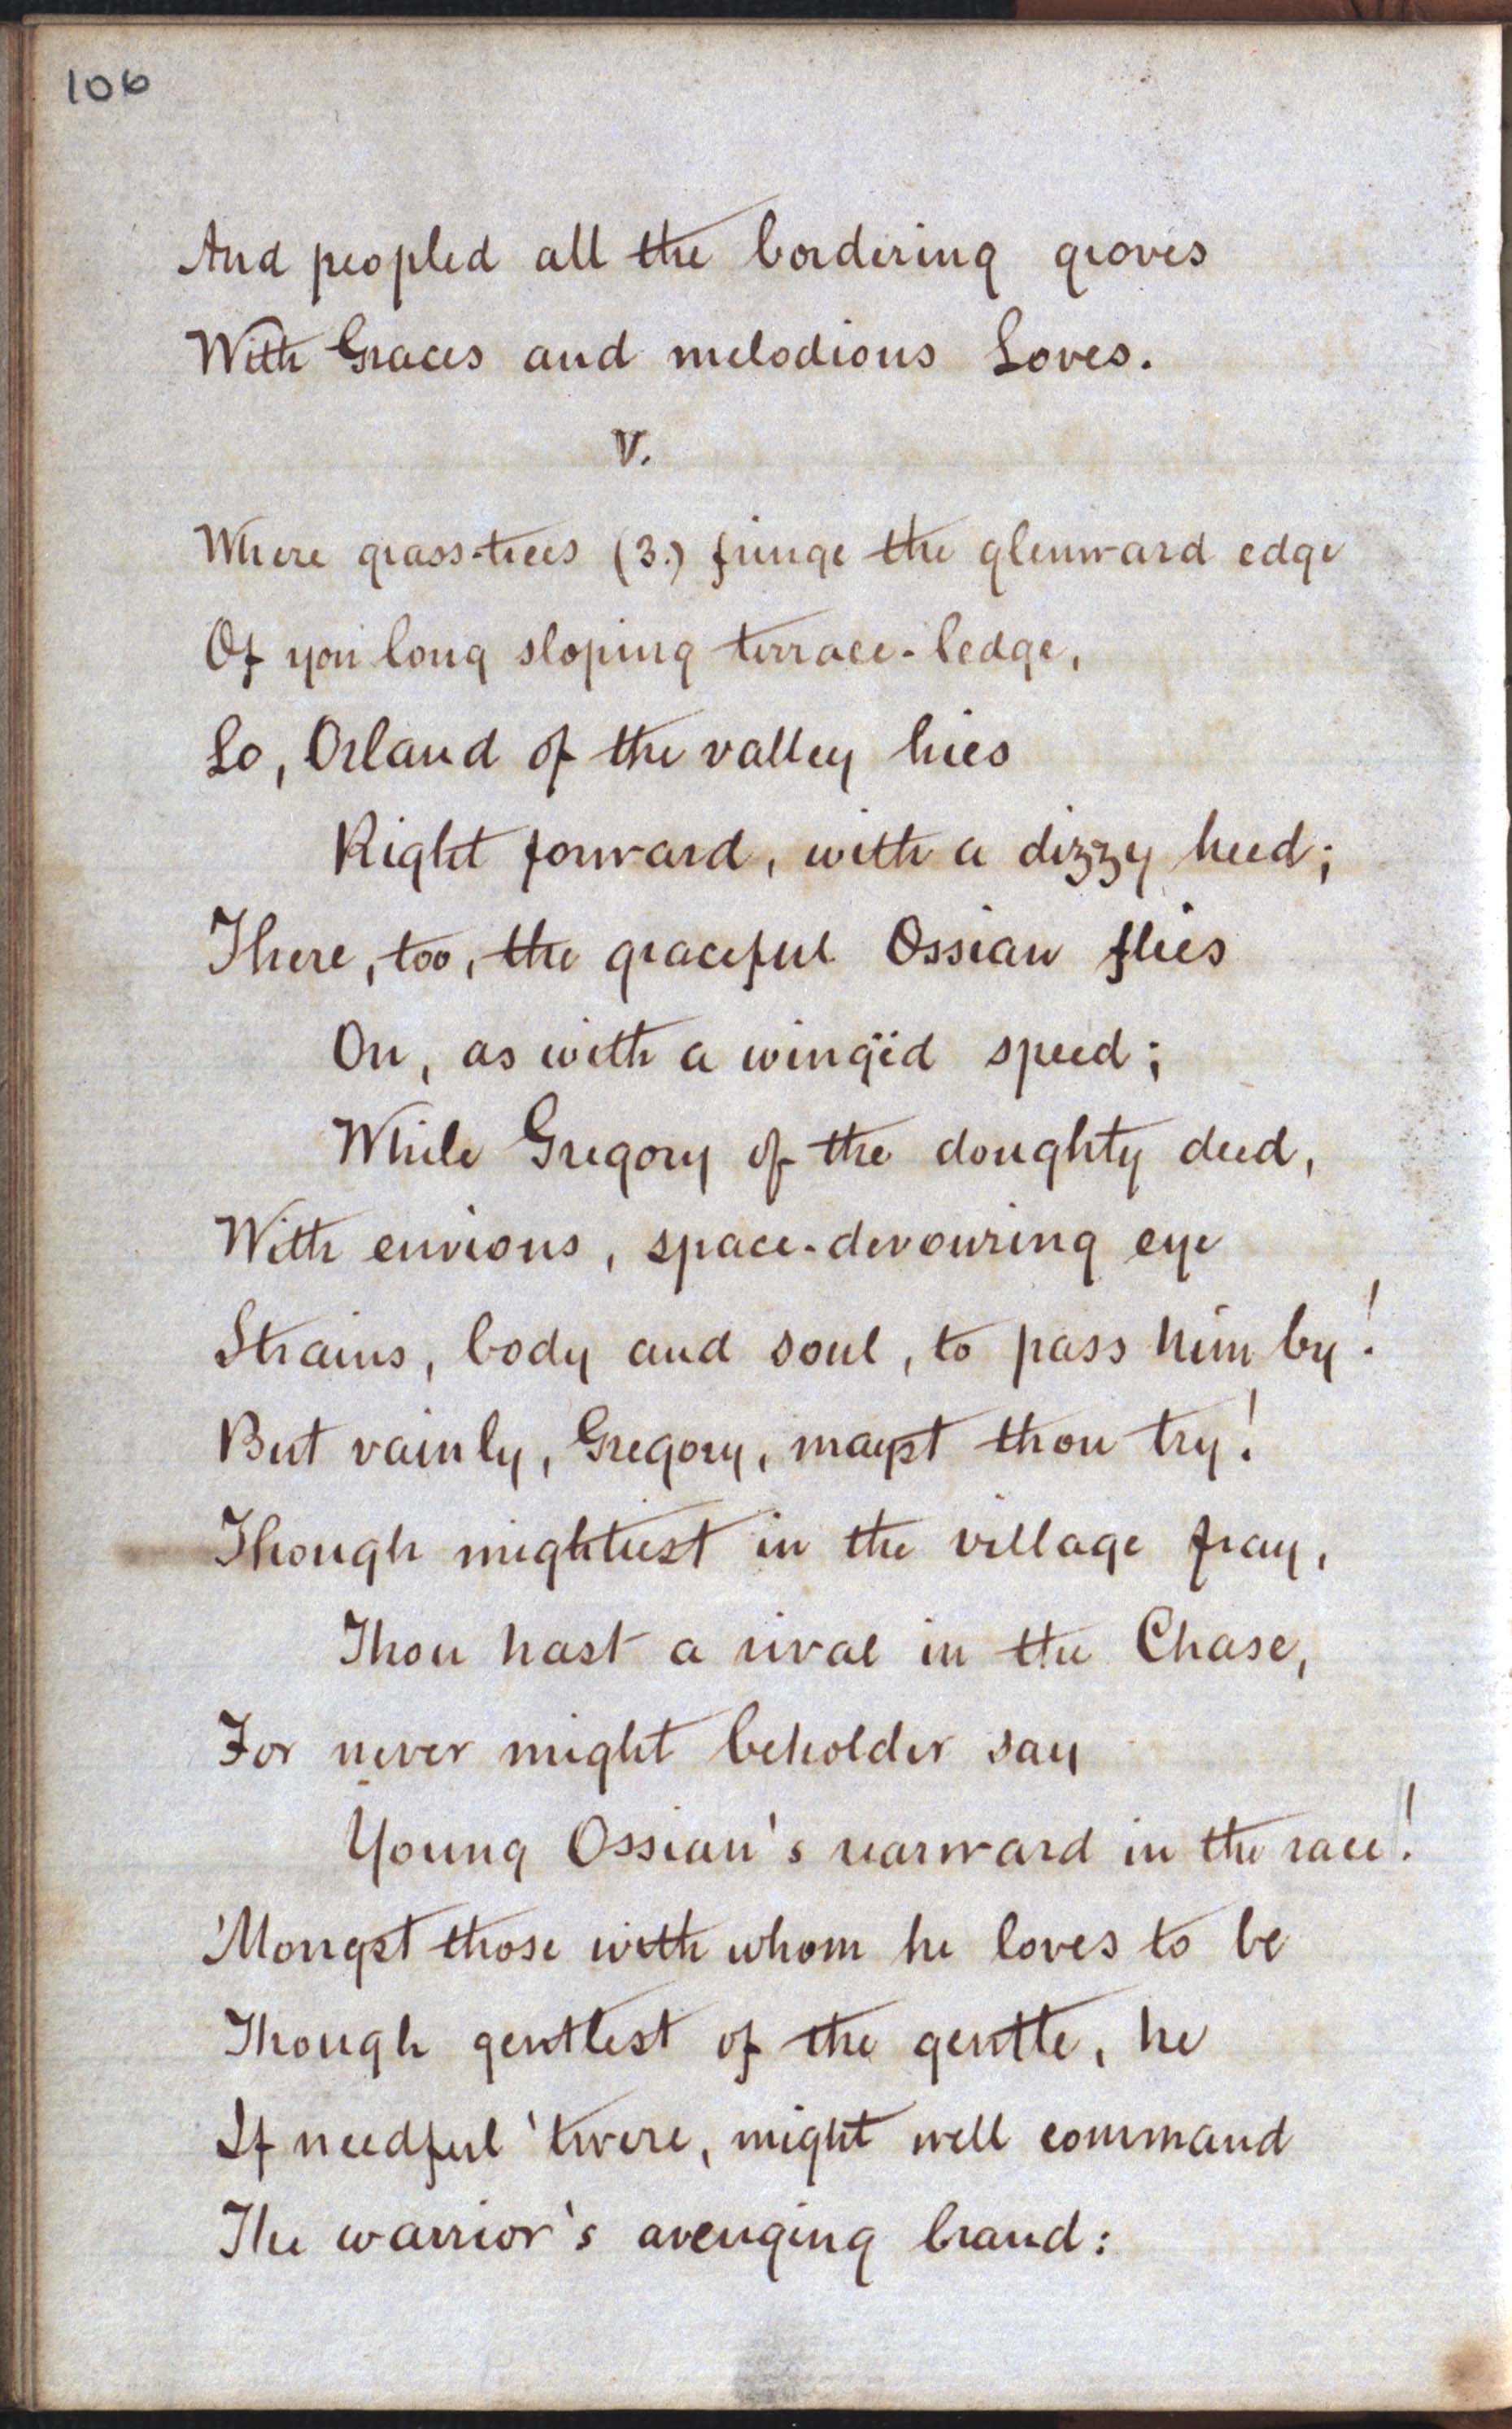 106
And peopled all the bordering groves
With Graces and melodious Loves.
V.
Where grass-trees (3.) fringe the glenward edge
Of yon long sloping terrace-ledge,
Lo, Orland of the valley hies
Right forward, with a dizzy heed;
There, too, the graceful Ossian flies
On, as with a wingëd speed;
While Gregory of the doughty deed,
With envious, space-devouring eye
Strains, body and soul, to pass him by!
But vainly, Gregory, mayst thou try!
Though mightiest in the village fray,
Thou hast a rival in the Chase,
For never might beholder say
Young Ossian's rearward in the race!
'Mongst those with whom he loves to be
Though gentlest of the gentle, he
If needful 'twere, might well command
The warrior's avenging brand: